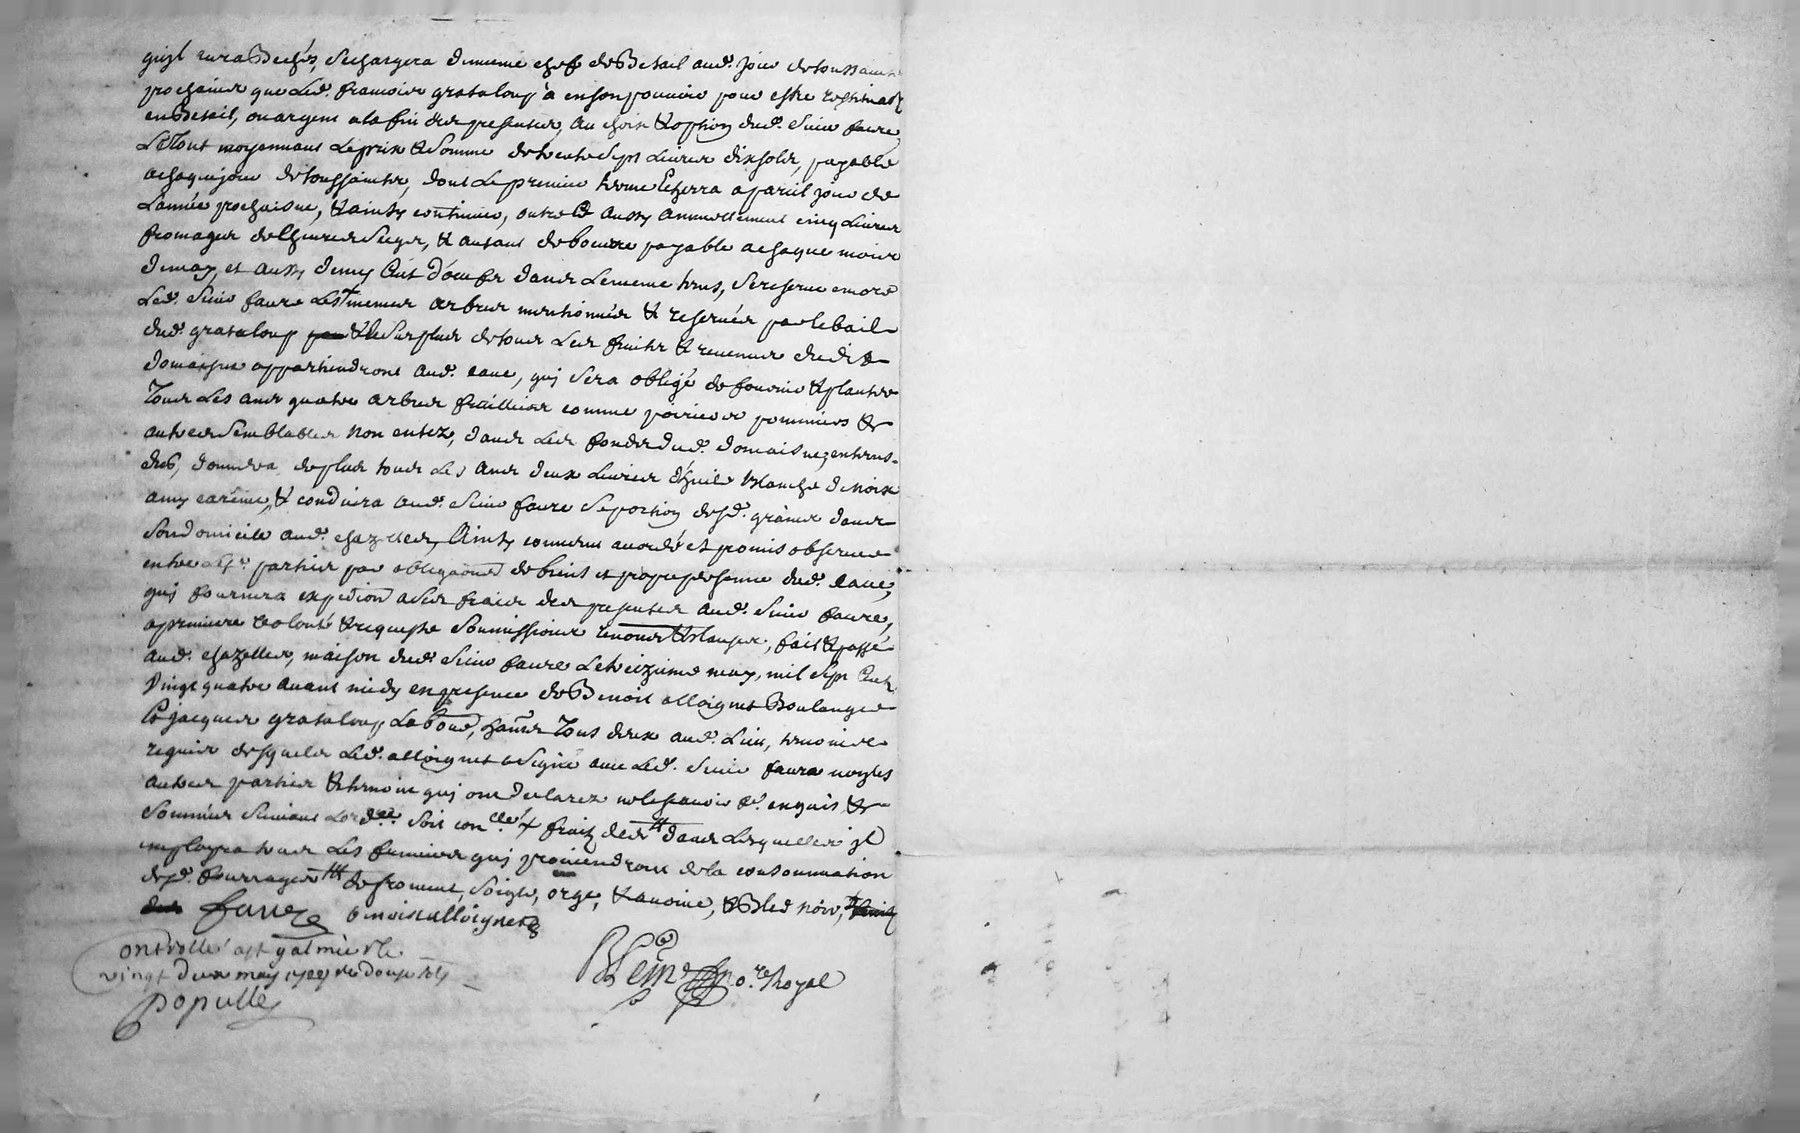 quil aura Bechés, se chargera du meme chef de Betail aud. jour de toussaint
prochaine que led. francois grataloup a en son pouvoir pour estre restitués
en Betail, ou argent a la fin des presentes, au choix & option dud. sieur faure,
Le Tout moyennant Le prix & somme de trente sept Livres dix sols, payable
a chaque jour de toussaintz, dont Le premier terme Echerra a pareil jour de
L'année prochaine, & ainsy continuer, outre ce aussy annuellement cinq Livres
fromages de Chevres secqs, & autant de beurre payable a chaque mois
de may, et aussy demy Cent d'oeufs dans Le meme tems, se reserve encore
Led. sieur faure Les memes arbres mentionnés & reservés par le bail
dud. grataloup & le surplus de tous Les fruits & revenus dudit
domaisne appartiendront aud. cave, qui sera obligé de fournir & planter
Tous Les ans quatre arbres fruittiers comme poiriers pommiers &
autres semblables non entez, dans Les fonds dud. domaisne, entrus
donnera de plus tous Les ans deux Livres d'huile blanche de noix
a my carême, & conduira aud. sieur faure sa portion desd. graines dans
son domicile aud. chazelles, Ainsy convenu accordé et promis observer
entre parties par obligaons de biens et propre personne dud. cave,
qui fournira expedion a ses frais des presentes aud. sieur faure,
a premiere volonté & requeste soumissions renons & clauses, fait & passé
aud. chazelles, maison dud. sieur faure Le treizieme may, mil sept Cent
Vingt quatre avant midy en presence de Benoit alloignet Boulanger
Et jacques grataloup Labour, hants Tous deux aud. Lieu, temoins
requis desquels Led. alloignet a signé avec Led. sieur faure non les
autres parties & temoin qui ont declarez ne le scavoir de ce enquis &
sommés suivant Lordce. soit conlle & fraiz dans Lesquelles jl
employra tous Les fumiers qui proviendront de la consommation
desd. fourrages de froment, seigle, orge, & avoine, & Bled noir,
faure benoist alloignet
Controllé a st galmier le
vingt deux may 1724 re douze sols
populle
no.re Royal